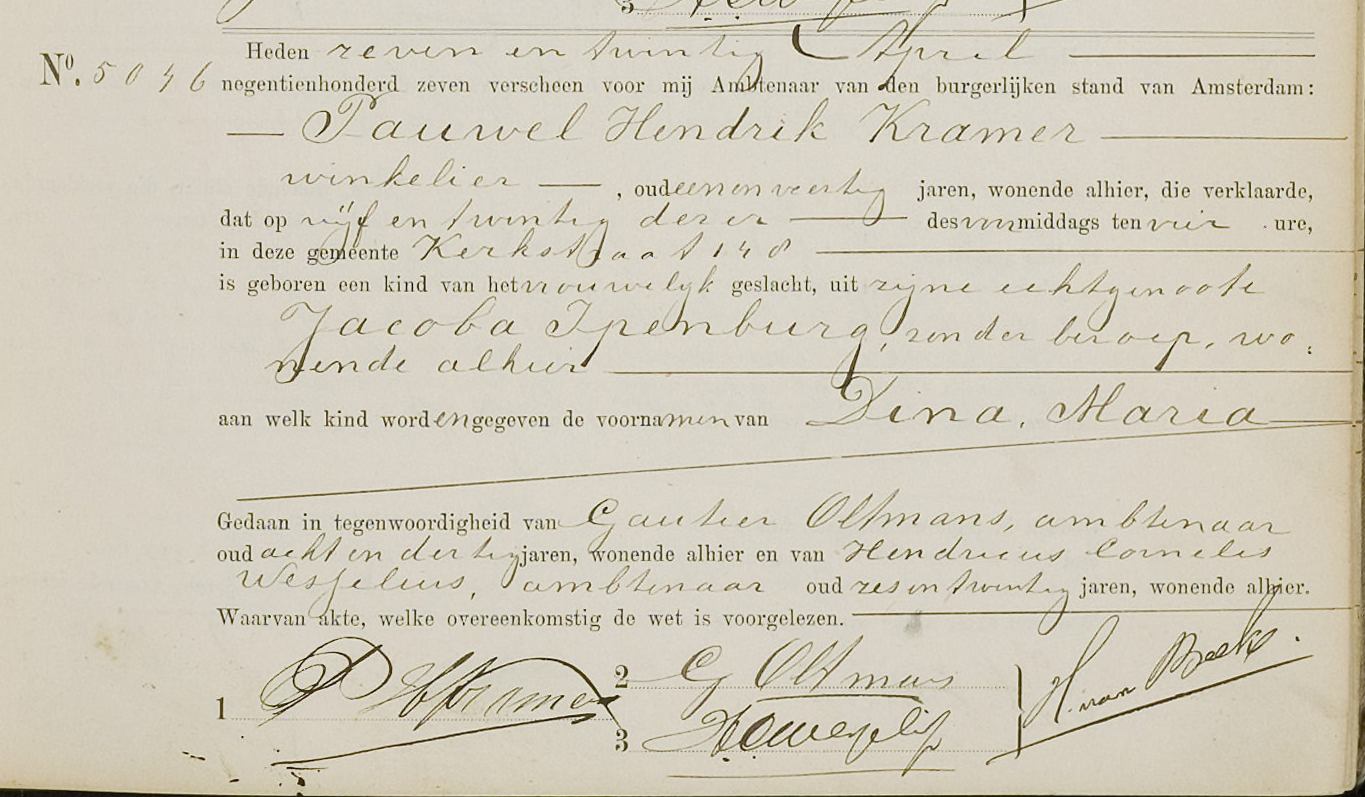 3
Heden zeven en twintig April
No. 5046 negentienhonderd zeven verscheen voor mij Ambtenaar van den burgerlijken stand van Amsterdam:
Pauwel Hendrik Kramer
winkelier, oud een en veertig jaren, wonende alhier, die verklaarde,
dat op vijf en twintig dezer des voormiddags ten vier ure,
in deze gemeente Kerkstraat 148
is geboren een kind van het vrouwelijk geslacht, uit zijne echtgenoote
Jacoba Ipenburg, zonder beroep, wo:
nende alhier
aan welk kind worden gegeven de voornamen van Dina, Maria
Gedaan in tegenwoordigheid van Gautier Oltmans, ambtenaar
oud acht en dertig jaren, wonende alhier en van Hendricus Cornelis
Wesselius, ambtenaar oud zes en twintig jaren, wonende alhier.
Waarvan akte, welke overeenkomstig de wet is voorgelezen.
1 P H Kramer 2 G Oltmans H. van Beek.
3